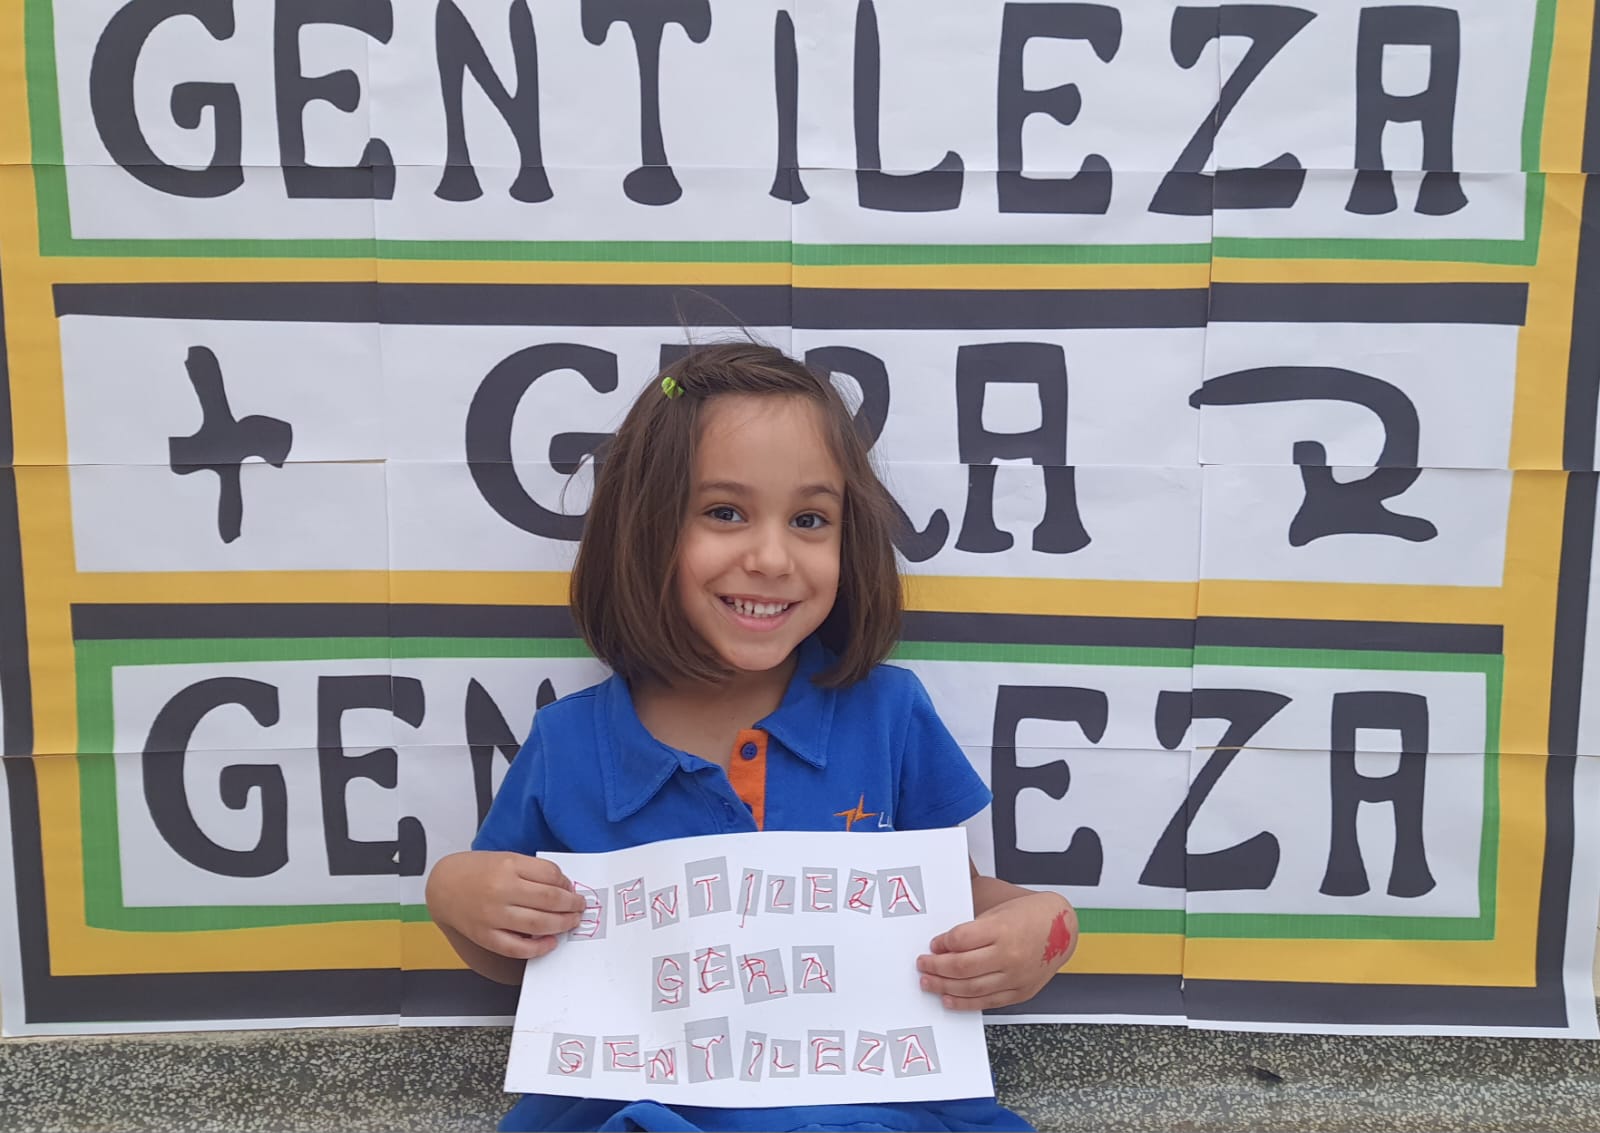 GENTILEZA
+ GERA R
GEN EZA
LU
GENTILEZA
GERA
GENTILEZA